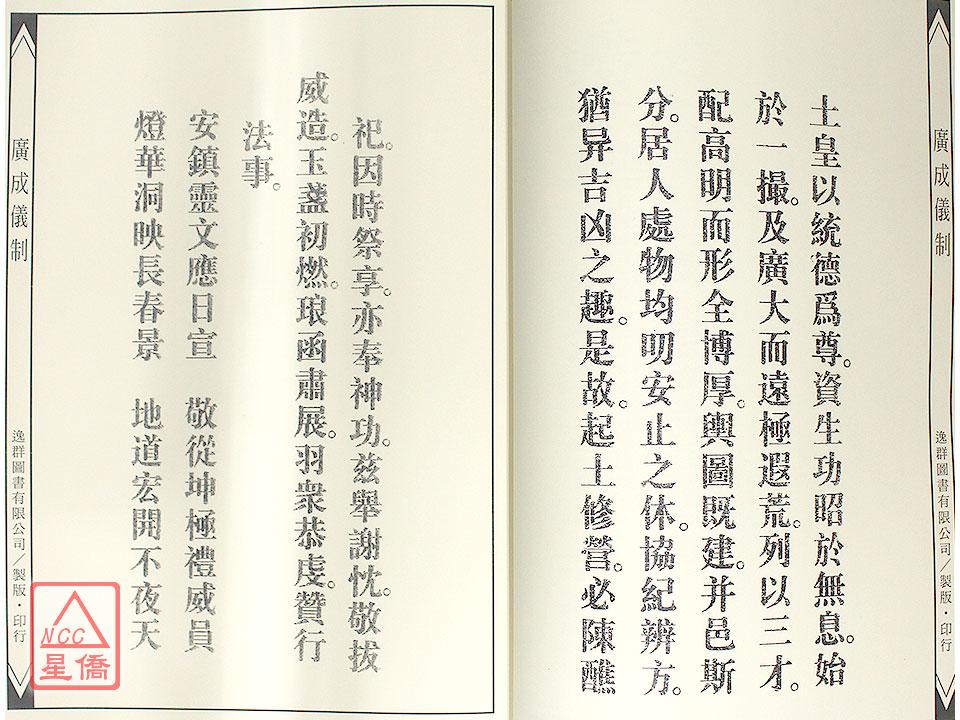 廣成儀制
土皇以統德爲尊。資生功昭於無息。始
於一撮。及廣大而遠極遐荒。列以三才。
配高明而形全博厚。輿圖既建。并邑斯
分。居人處物均叨安止之休。協紀辨方。
猶异吉凶之趣。是故。起土修營。必陳醮
逸群圖書有限公司/製版・印行
祀。因時祭享。亦奉神功。茲舉謝忱。敬拔
威造。玉盞初燃。琅函肅展。羽衆恭虔。贊行
法事。
安鎮靈文應日宣 敬從坤極禮威員
燈華洞映長春景 地道宏開不夜天
廣成儀制
逸群圖書有限公司/製版・印行
NCC
星僑